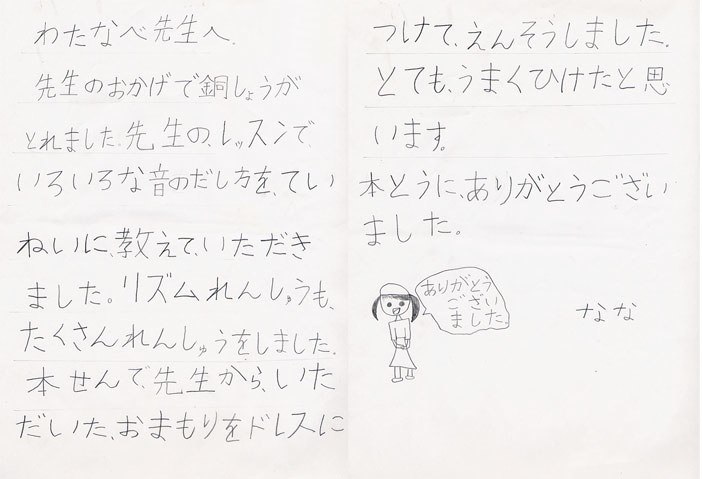 わたなべ先生へ.
先生のおかげで銅しょうが
とれました.先生の.レッスンで.
いろいろな音のだし方を.てい
ねいに.教えて.いただき
ました。リズムれんしゅうも.
たくさんれんしゅうをしました.
本せんで.先生から.いた
だいた.おまもりをドレスに
つけて.えんそうしました.
とても.うまくひけたと思
います.
本とうに.ありがとうござい
ました.
ありがとう
ござい
ました.
なな